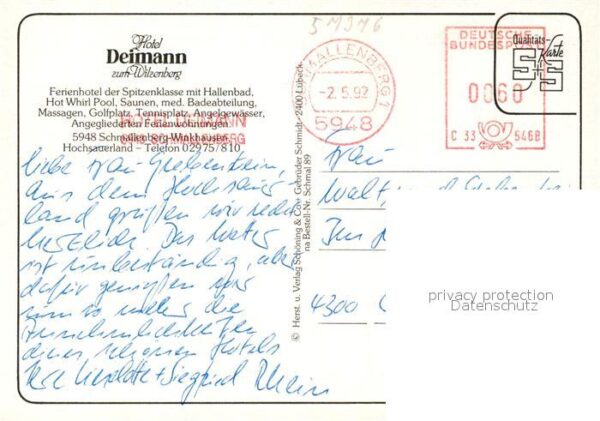 51976
Hotel
Deimann
zum Wilzenberg
Ferienhotel der Spitzenklasse mit Hallenbad,
Hot Whirl Pool, Saunen, med. Badeabteilung,
Massagen, Golfplatz, Tennisplatz, Angelgewässer,
Angegliederten Ferienwohnungen
5948 Schmallenberg-Winkhausen
Hochsauerland – Telefon 02975/810
SCHMALLENBERG 1
-2.5.92
5948
DEUTSCHE
BUNDESPOST
0060
C 33 546B
Qualitäts-
Karte
S+S
Liebe Frau
aus dem Hochsauer-
land grüßen wir recht
herzlich. Das Wetter
ist unbeständig, aber
dafür genießen wir
um so mehr die
Annehmlichkeiten
dieses schönen Hotels
Ihre Liselotte + Siegfried Rhein
© Herst. u. Verlag Schöning & Co + Gebrüder Schmidt · 2400 Lübeck
na Bestell-Nr. Schmal 89
Frau
4300
privacy protection
Datenschutz